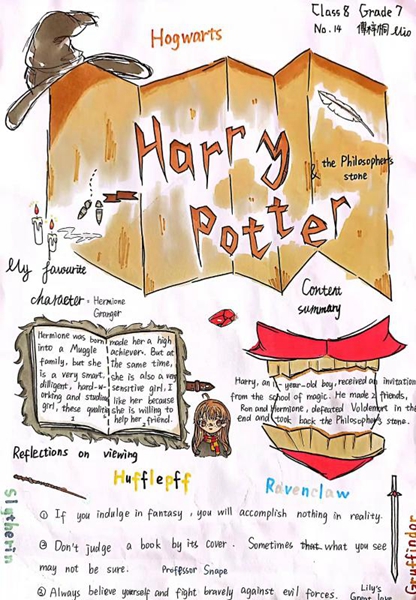 Class 8 Grade 7
Hogwarts
No. 14 Mio
Harry
& the Philosopher's
stone
Potter
My favourite
character = Hermione
Granger
Content
summary
Hermione was born
into a Muggle
family, but she
is a very smart,
diligent, hard-w-
orking and studious
girl, these qualities
made her a high
achiever. But at
the same time,
she is also a very
sensitive girl. I
like her because
she is willing to
help her friend.
Harry, an 11-year-old boy, received an invitation
from the school of magic. He made 2 friends,
Ron and Hermione, defeated Voldemort in the
end and took back the Philosopher's stone.
Reflections on viewing
Hufflepff
Ravenclaw
Slytherin
Gruffindor
① If you indulge in fantasy, you will accomplish nothing in reality.
② Don't judge a book by its cover. Sometimes what you see
may not be sure. Professor Snape
③ Always believe yourself and fight bravely against evil forces. Lily's
Great love